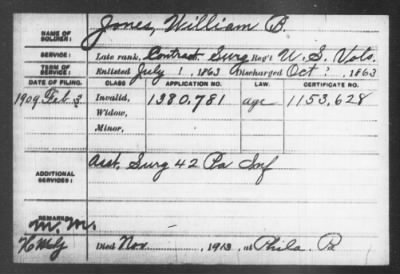 NAME OF SOLDIER: Jones, William B.
SERVICE: Late rank, Contract Surg Reg't U. S. Vols.
TERM OF SERVICE: Enlisted July 1, 1863 Discharged Oct ?, 1863
DATE OF FILING. CLASS APPLICATION NO. LAW. CERTIFICATE NO.
1909 Feb. 3. Invalid, 1380,781 age 1153,628
Widow,
Minor,
ADDITIONAL SERVICES: Asst. Surg 42 Pa Inf
REMARKS:
M. M.
Died Nov , 1913, at Phila. Pa